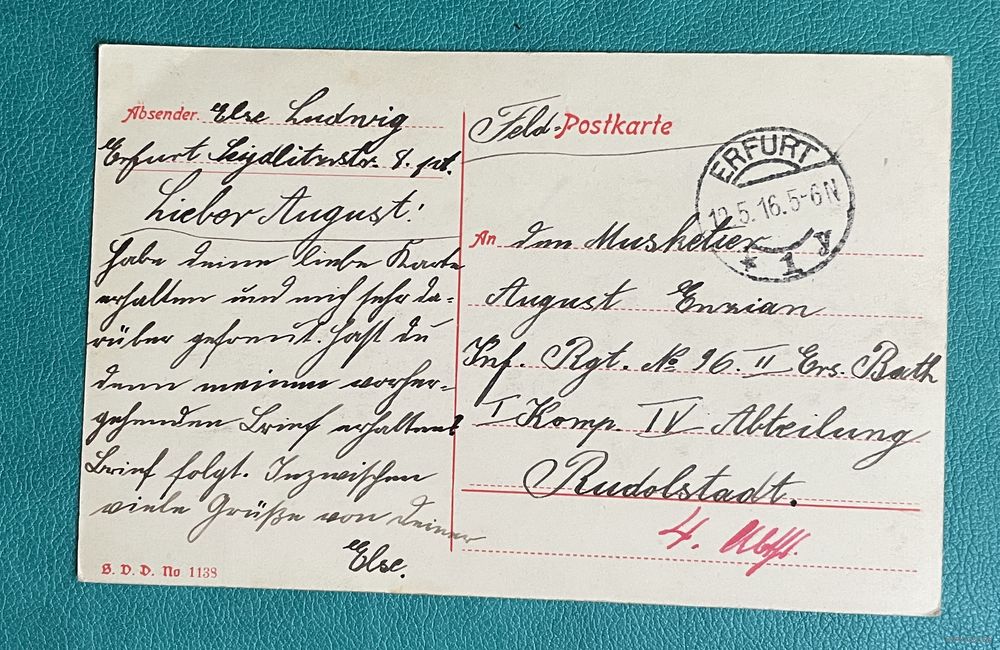 Absender. Else Ludwig
Erfurt Seydlitzstr. 8. pt.
Lieber August!
Habe deine liebe Karte
erhalten und mich sehr da-
rüber gefreut. Hast du
denn meinen vorher-
gehenden Brief erhalten?
Brief folgt. Inzwischen
viele Grüße von deiner
Else.
B. D. D. No 1138
Feld-Postkarte
ERFURT
12.5.16.5-6N
* 1 y
An den Musketier
August Enzian
Inf. Rgt. No 96. II Ers. Batl
I Komp. IV Abteilung
Rudolstadt.
4. Abtl.